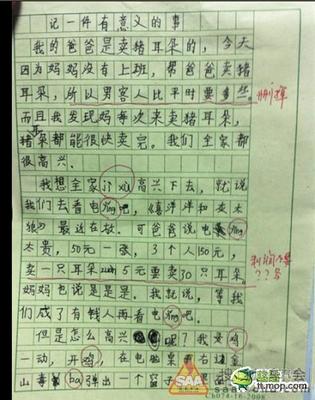 记一件有意义的事
我的爸爸是卖猪耳朵的，今天
因为妈妈没有上班，帮爸爸卖猪
耳朵，所以男客人比平时要多些。
而且我发现妈每次来卖猪耳朵，
猪朵都能很快卖完。我们全家都
很高兴。
我想全家jì xù高兴下去，就说
我们去看电yǐng吧，《喜洋洋和灰太
狼》最近在放。可爸爸说电yǐng
太贵，50元一张，3个人150元，
卖一只耳朵5元要卖30只耳朵。
妈妈也说是是是。我就说，等我
们成了有钱人再看电yǐng吧。
但是怎么高兴呢？我支鸡
一动，开鸡在电脑桌面右键金
山毒bà弹出一个窗子
删掉
？？号
SAA